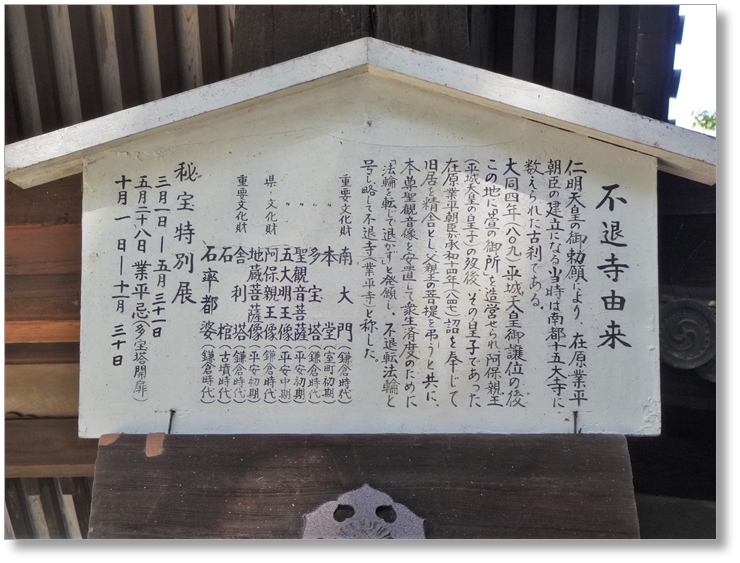 不退寺由来
仁明天皇の御勅願により、在原業平
朝臣の建立になる当時は南都十五大寺に
数えられた古刹である。
大同四年(八〇九)平城天皇御譲位の後
この地に「萱の御所」を造営せられ阿保親王
(平城天皇の皇子)の歿後、その皇子であった
在原業平朝臣が承和十四年(八四七)詔を奉じて
旧居を精舎とし父親王の菩提を弔うと共に、
本尊聖観音像を安置して衆生済度のために
「法輪を転じて退かず」と発願し、不退転法輪と
号し略して不退寺(業平寺)と称した。
重要文化財 南大門 (鎌倉時代)
〃 本堂 (室町初期)
〃 多宝塔 (鎌倉時代)
〃 聖観音菩薩 (平安初期)
〃 五大明王像 (平安中期)
県・文化財 阿保親王像 (鎌倉時代)
地蔵菩薩像 (平安初期)
重要文化財 舎利塔 (鎌倉時代)
石棺 (古墳時代)
石率都婆 (鎌倉時代)
秘宝特別展
三月一日—五月三十一日
五月二十八日 業平忌(多宝塔開扉)
十月一日—十一月三十日